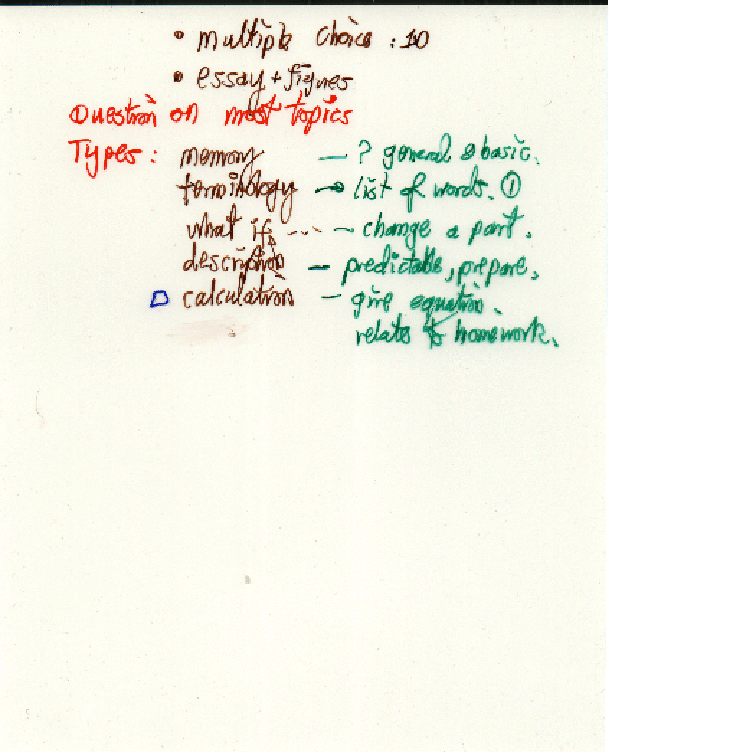 • multiple choice : 10
• essay + figures
Question on most topics
Types : memory — ? general & basic.
terminology → list of words. ①
what if ... — change a part.
description — predictable, prepare.
calculations — give equation.
relates to homework.